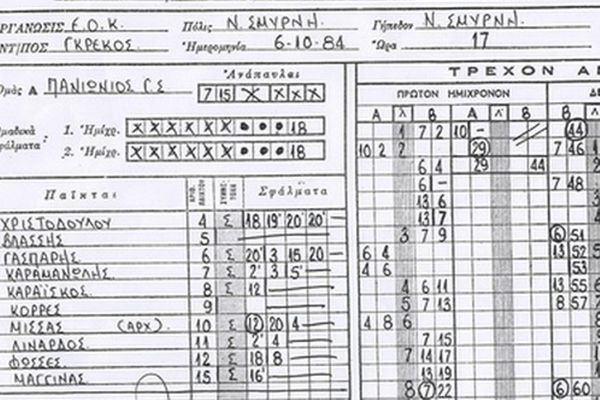 ΡΓΑΝΩΣΙΣ Ε.Ο.Κ. Πόλις Ν. ΣΜΥΡΝΗ. Γήπεδον Ν. ΣΜΥΡΝΗ.
ΝΤ/ΠΟΣ ΓΚΡΕΚΟΣ. Ἡμερομηνία 6-10-84 Ὥρα 17
Ἀνάπαυλαι
μὰς Α ΠΑΝΙΩΝΙΟΣ Γ.Σ 7 15 X X X X
ΤΡΕΧΟΝ ΑΠ
ΠΡΩΤΟΝ ΗΜΙΧΡΟΝΟΝ ΔΕ
Α λ Β Α Λ Β Β
μαδικὰ 1. Ἡμίχρ. X X X X X X • • • 18
φάλματα 2. Ἡμίχρ. X X X X X X • • • 18
1 7 2 10 - 44
10 2 2 29 7 46
6 4 29 44
61 - 7 48
13 6
13 7
3 7 9 6 51
6 4 13 52
4 6 53
4 6 11 13 55
5 7 13 8 57
4 8 6
7 15
7 14 17
13 19
8 7 22 6 60
Παῖκται ΑΡΙΘ. ΠΑΙΚΤΟΥ Σφάλματα
ΧΡΙΣΤΟΔΟΥΛΟΥ 4 Σ 18 19' 20' 20'
ΒΛΑΣΣΗΣ 5
ΓΑΣΠΑΡΗΣ 6 Σ 20' 3 15 20
ΚΑΡΑΜΑΝΩΛΗΣ. 7 Σ 2' 3 5'
ΚΑΡΑΪΣΚΟΣ. 8 Σ 12
ΚΟΡΡΕΣ 9
ΜΙΣΣΑΣ (ΑΡΧ). 10 Σ 12 20 4
ΛΙΝΑΡΔΟΣ. 11 Σ 2' 4
ΦΟΣΣΕΣ. 12 Σ 18 8
ΜΑΓΓΙΝΑΣ. 15 Σ 16'